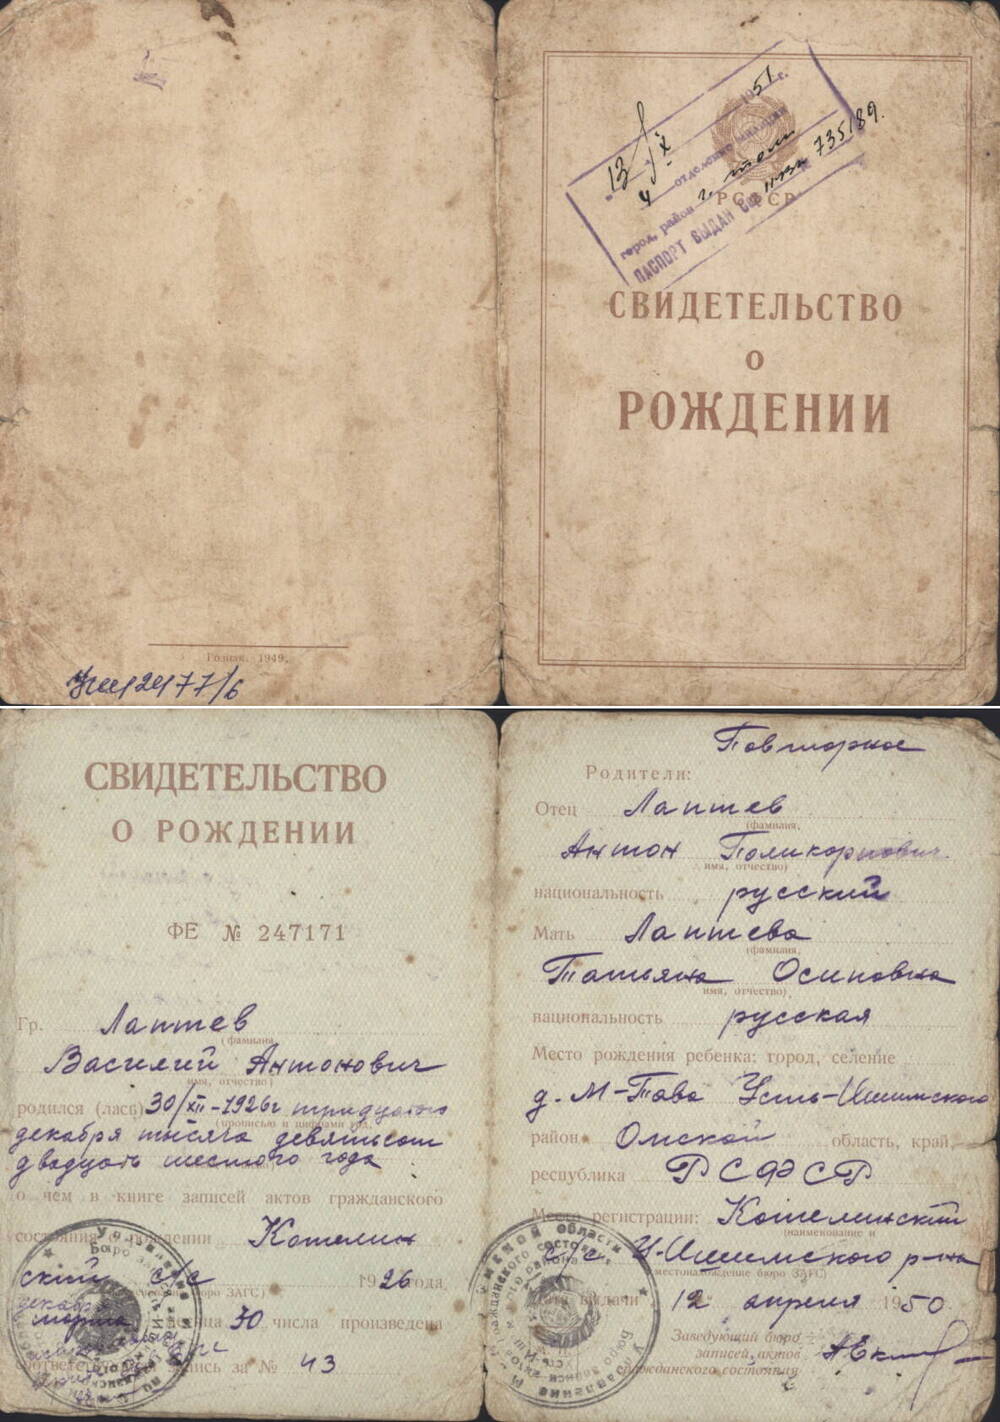 13/X 1951 г.
4 отделение милиции
город, район г.
ПАСПОРТ ВЫДАН 735189.
РСФСР
СВИДЕТЕЛЬСТВО
О
РОЖДЕНИИ
Гознак. 1949.
СВИДЕТЕЛЬСТВО
О РОЖДЕНИИ
ФЕ № 247171
Гр. Лаптев
(фамилия,
Василий Антонович
имя, отчество)
родился (лась) 30/XII-1926г тридцатого
(прописью и цифрами год,
декабря тысяча девятьсот
двадцать шестого года
о чем в книге записей актов гражданского
состояния о рождении Котелин
ский с/с 1926 года
декабря
марта месяца 30 числа произведена
соответствующая запись за № 43
Повторное
Родители:
Отец Лаптев
(фамилия,
Антон Поликорпович
имя, отчество)
национальность русский
Мать Лаптева
(фамилия,
Татьяна Осиповна
имя, отчество)
национальность русская
Место рождения ребенка: город, селение
д. М-Тава Усть-Ишимского
район Омской область, край,
республика РСФСР
Место регистрации: Котелинский
(наименование и
с/с У-Ишимского р-на
местонахождение бюро ЗАГС)
Дата выдачи 12 апреля 1950.
Заведующий бюро
записей актов
гражданского состояния